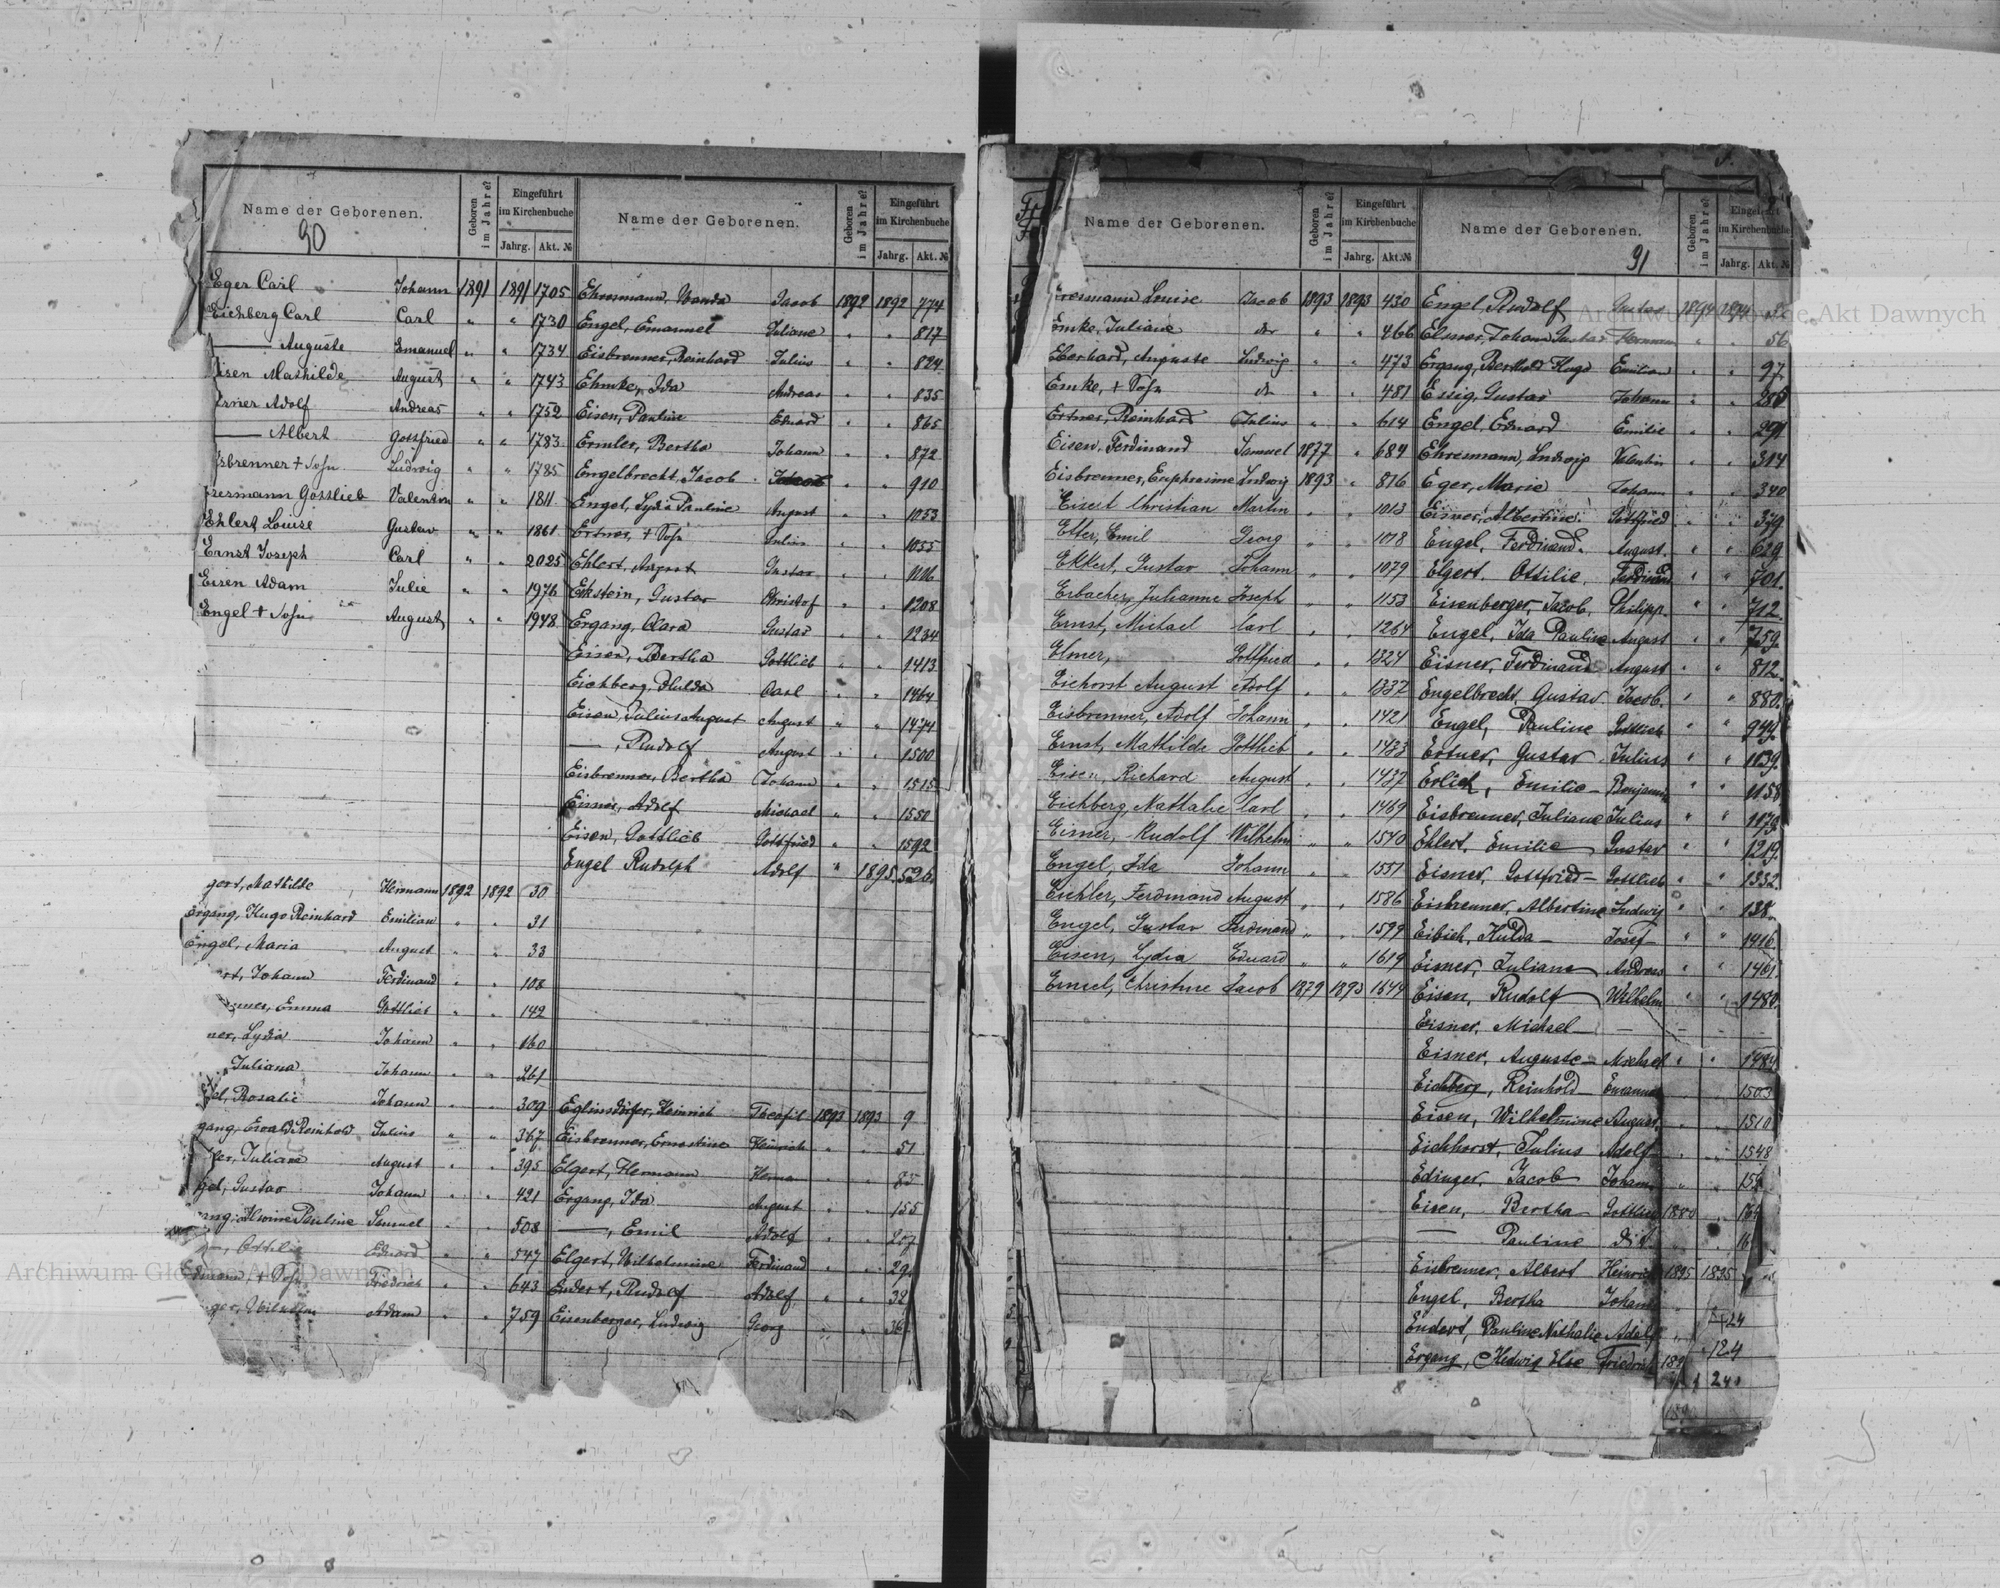 Name der Geborenen.
Geboren im Jahre?
Eingeführt im Kirchenbuche
Jahrg. Akt. №
90
Eger Carl Johann 1891 1891 1705
Eichberg Carl Carl " " 1730
— Auguste Emanuel " " 1734
Eisen Mathilde August " " 1743
Adolf Andreas " " 1752
— Albert Gottfried " " 1783
† Sohn Ludwig " " 1785
Gottlieb Valentin " " 1811
Ehlert Louise Gustav " " 1861
Ernst Joseph Carl " " 2025
Eisen Adam Julie " " 1976
Engel † Sohn August " " 1948
Mathilde Hermann 1892 1892 30
Ergang, Hugo Reinhard Emilian " " 31
Engel, Maria August " " 33
Johann Ferdinand " " 108
Emma Gottlieb " " 142
Lydia Johann " " 160
Juliana Johann " " 261
Rosalie Johann " " 309
Ewald Reinhold Julius " " 367
Juliane August " " 395
Gustav Johann " " 421
Pauline Samuel " " 508
Ottilie Eduard " " 547
† Sohn Friedrich " " 643
Adam " " 759
Name der Geborenen.
Geboren im Jahre?
Eingeführt im Kirchenbuche
Jahrg. Akt. №
Ehresmann, Wanda Jacob 1892 1892 774
Engel, Emanuel Juliane " " 817
Eisbrenner, Reinhard Julius " " 824
Ehmke, Ida Andreas " " 835
Eisen, Pauline Eduard " " 865
Ermler, Bertha Johann " " 872
Engelbrecht, Jacob Jacob " " 910
Engel, Lydia Pauline August " " 1053
Ertner, † Sohn Julius " " 1055
Ehlert, August Gustav " " 1106
Ekstein, Gustav Christof " " 1208
Ergang, Clara Gustav " " 1234
Eisen, Bertha Gottlieb " " 1413
Eichberg, Hulda Carl " " 1464
Eisen, Julius August August " " 1474
—, Rudolf August " " 1500
Eisbrenner, Bertha Johann " " 1515
Eisner, Adolf Michael " " 1550
Eisen, Gottlieb Gottfried " " 1592
Engel Rudolph Adolf " 1895 526
Eglinsdörfer, Heinrich Theofil 1893 1893 9
Eisbrenner, Ernestine Heinrich " " 51
Elgert, Hermann " "
Ergang, Ida August " " 155
—, Emil Adolf " " 207
Elgert, Wilhelmine Ferdinand " " 29
Endert, Rudolf Adolf " " 32
Eisenberger, Ludwig Georg " " 36
Name der Geborenen.
Geboren im Jahre?
Eingeführt im Kirchenbuche
Jahrg. Akt. №
Louise Jacob 1893 1893 430
Emke, Juliane " " 466
Eberhard, Auguste Ludwig " " 473
Emke, † Sohn " " 481
Ertner, Reinhard Julius " " 614
Eisen, Ferdinand Samuel 1877 " 684
Eisbrenner, Euphrosine Ludwig 1893 " 876
Eisert Christian Martin " " 1013
Etter, Emil Georg " " 1078
Ekkert, Gustav Johann " " 1079
Erbacher, Julianne Joseph " " 1153
Ernst, Michael Carl " " 1264
Elmer, Gottfried " " 1324
Eichorst August Adolf " " 1337
Eisbrenner, Adolf Johann " " 1421
Ernst, Mathilde Gottlieb " " 1433
Eisen, Richard August " " 1437
Eichberg, Nathalie Carl " " 1469
Eisner, Rudolf Wilhelm " " 1540
Engel, Ida Johann " " 1551
Eichler, Ferdinand August " " 1586
Engel, Gustav Ferdinand " " 1599
Eisen, Lydia Eduard " " 1619
Christine Jacob 1879 1893 1644
Name der Geborenen.
Geboren im Jahre?
Eingeführt im Kirchenbuche
Jahrg. Akt. №
91
Engel, Rudolf Gustav 1894 1894
Elsner, Johann Gustav Hermann " " 56
Ergang, Berthold Hugo Emilian " " 97
Essig, Gustav Johann " "
Engel, Eduard Emilie " "
Ehresmann, Ludwig Valentin " " 314
Eger, Marie Johann " " 340
Eisner, Albertine Gottfried " " 379
Engel, Ferdinand August " " 629
Elgert, Ottilie Ferdinand " " 701
Eisenberger, Jacob Philipp " " 712
Engel, Ida Pauline August " " 759
Eisner, Ferdinand August " " 812
Engelbrecht, Gustav Jacob " " 880
Engel, Pauline Gottlieb " " 944
Ertner, Gustav Julius " " 1139
Erlich, Emilie Benjamin " " 1158
Eisbrenner, Juliane Julius " " 1179
Ehlert, Emilie Gustav " " 1219
Eisner, Gottfried Gottlieb " " 1332
Eisbrenner, Albertine Ludwig " "
Eibich, Hulda Josef " " 1416
Eisner, Juliane Andreas " " 1461
Eisen, Rudolf Wilhelm " " 1480
Eisner, Michael — — —
Eisner, Auguste Michael " " 1484
Eichberg, Reinhold Emanuel " 1503
Eisen, Wilhelmine August " 1510
Eichhorst, Julius Adolf " " 1548
Edinger, Jacob Johann " "
Eisen, Bertha Gottlieb 1880 "
— Pauline
Eisbrenner, Albert Heinrich 1895 1895
Engel, Bertha Johann 24
Endert, Pauline Nathalie Adolf 124
Ergang, Hedwig Else Friedrich
Archiwum Główne Akt Dawnych
Archiwum Główne Akt Dawnych